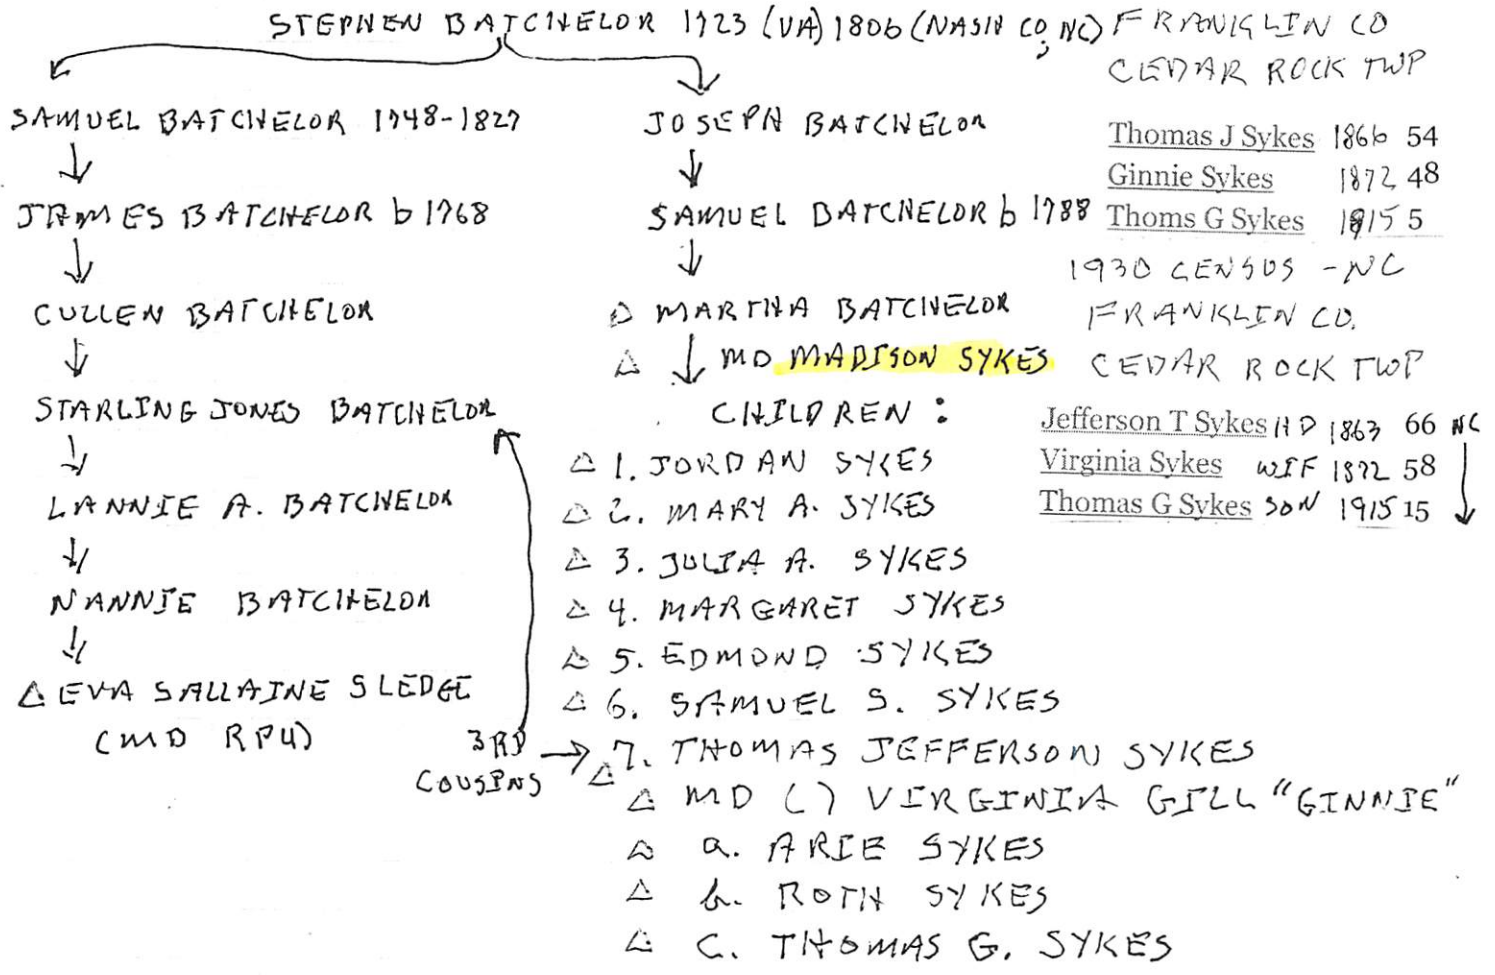 STEPHEN BATCHELOR 1723 (VA) 1806 (NASH CO, NC)
SAMUEL BATCHELOR 1748-1827
JAMES BATCHELOR b 1768
CULLEN BATCHELOR
STARLING JONES BATCHELOR
LANNIE A. BATCHELOR
NANNIE BATCHELOR
△ EVA SALLAINE SLEDGE
(MD RPU)
3RD
COUSINS
JOSEPH BATCHELOR
SAMUEL BATCHELOR b 1788
△ MARTHA BATCHELOR
△ MD MADISON SYKES
CHILDREN:
△ 1. JORDAN SYKES
△ 2. MARY A. SYKES
△ 3. JULIA A. SYKES
△ 4. MARGARET SYKES
△ 5. EDMOND SYKES
△ 6. SAMUEL S. SYKES
△ 7. THOMAS JEFFERSON SYKES
△ MD ( ) VIRGINIA GILL "GINNIE"
△ a. ARIE SYKES
△ b. ROTH SYKES
△ C. THOMAS G. SYKES
FRANKLIN CO
CEDAR ROCK TWP
Thomas J Sykes 1866 54
Ginnie Sykes 1872 48
Thoms G Sykes 1915 5
1930 CENSUS - NC
FRANKLIN CO.
CEDAR ROCK TWP
Jefferson T Sykes HD 1863 66 NC
Virginia Sykes WIF 1872 58
Thomas G Sykes SON 1915 15